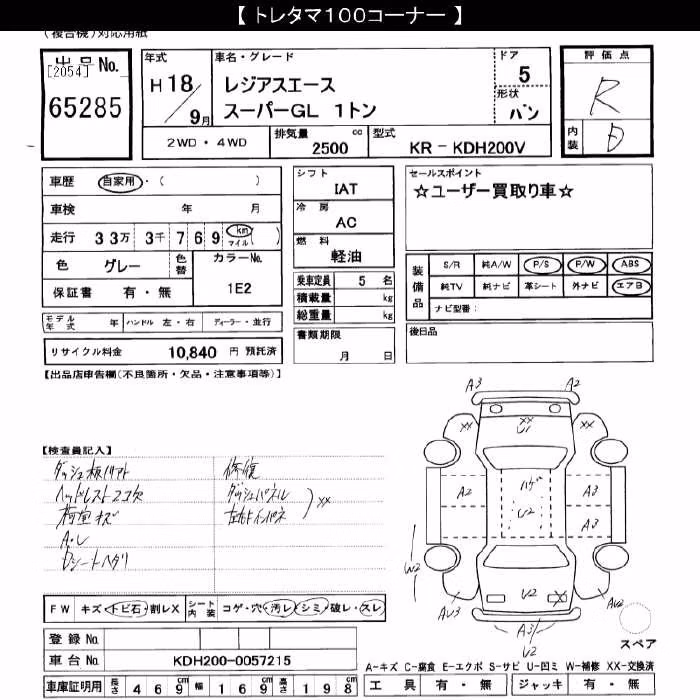 【 トレタマ100コーナー 】
(複合機)対応用紙
出品 No.
[2054]
65285
年式
H 18 / 9月
車名・グレード
レジアスエース
スーパーGL 1トン
ドア
5
形状
バン
評価点
R
内装
D
2WD・4WD
排気量
2500 cc
型式
KR－KDH200V
車歴 自家用・( )
車検 年 月
走行 33万 3千 769 km マイル ( )
色 グレー
色替
カラーNo.
1E2
保証書 有・無
シフト
IAT
冷房
AC
燃料
軽油
乗車定員 5 名
積載量 kg
総重量 kg
書類期限
月 日
セールスポイント
☆ユーザー買取り車☆
装備品
S/R 純A/W P/S P/W ABS
純TV 純ナビ 革シート 外ナビ エアB
ナビ型番：
後日品
モデル年式 年 ハンドル 左・右 ディーラー・並行
リサイクル料金 10,840 円 預託済
【出品店申告欄(不良箇所・欠品・注意事項等)】
【検査員記入】
ヘッドレスト2コ欠
荷室キズ
A・U
修復
ダッシュパネル
左右インパネ
XX
A3 A2
XX XX XX
U1
ハゲ
A2 U2 A3
A3
W2 W2
U2 X
AU3 A3 AU2
U2
スペア
FW キズ・トビ石・割レX
シート内装 コゲ・穴・汚レ・シミ・破レ・スレ
登録 No.
車台 No. KDH200-0057215
車庫証明用 長さ 469 cm 幅 169 cm 高さ 198 cm
A-キズ C-腐食 E-エクボ S-サビ U-凹ミ W-補修 XX-交換済
工具 有・無 ジャッキ 有・無